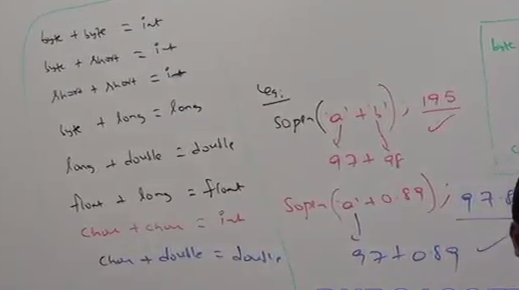 byte + byte = int
byte + short = int
short + short = int
byte + long = long
long + double = double
float + long = float
char + char = int
char + double = double
eg:
sopln('a' + 'b'); 195
97 + 98
sopln('a' + 0.89); 97.8
97 + 0.89
byte